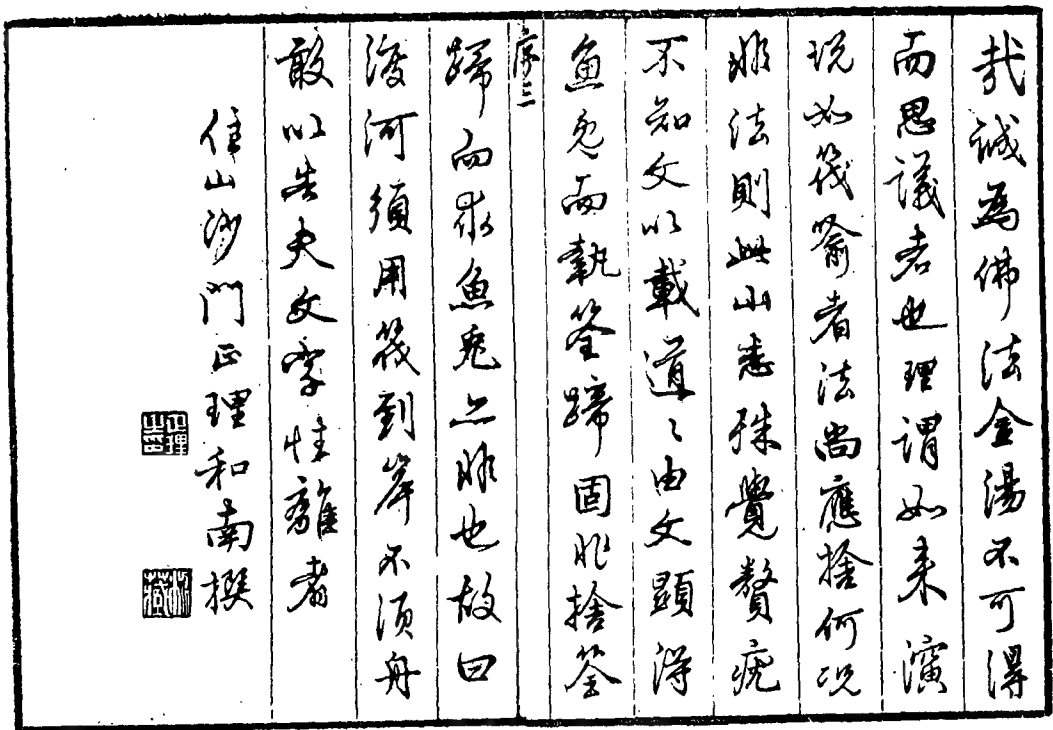 哉誠為佛法金湯不可得
而思議者也理謂如来演
说如筏喻者法尚應捨何况
非法則此山志殊覺贅疣
不知文以載道〻由文顯得
魚兎而執筌蹄固非捨筌
序三
蹄而求魚兎亦非也故曰
渡河須用筏到岸不須舟
敢以告夫文字性離者
住山沙門正理和南撰
正理之印